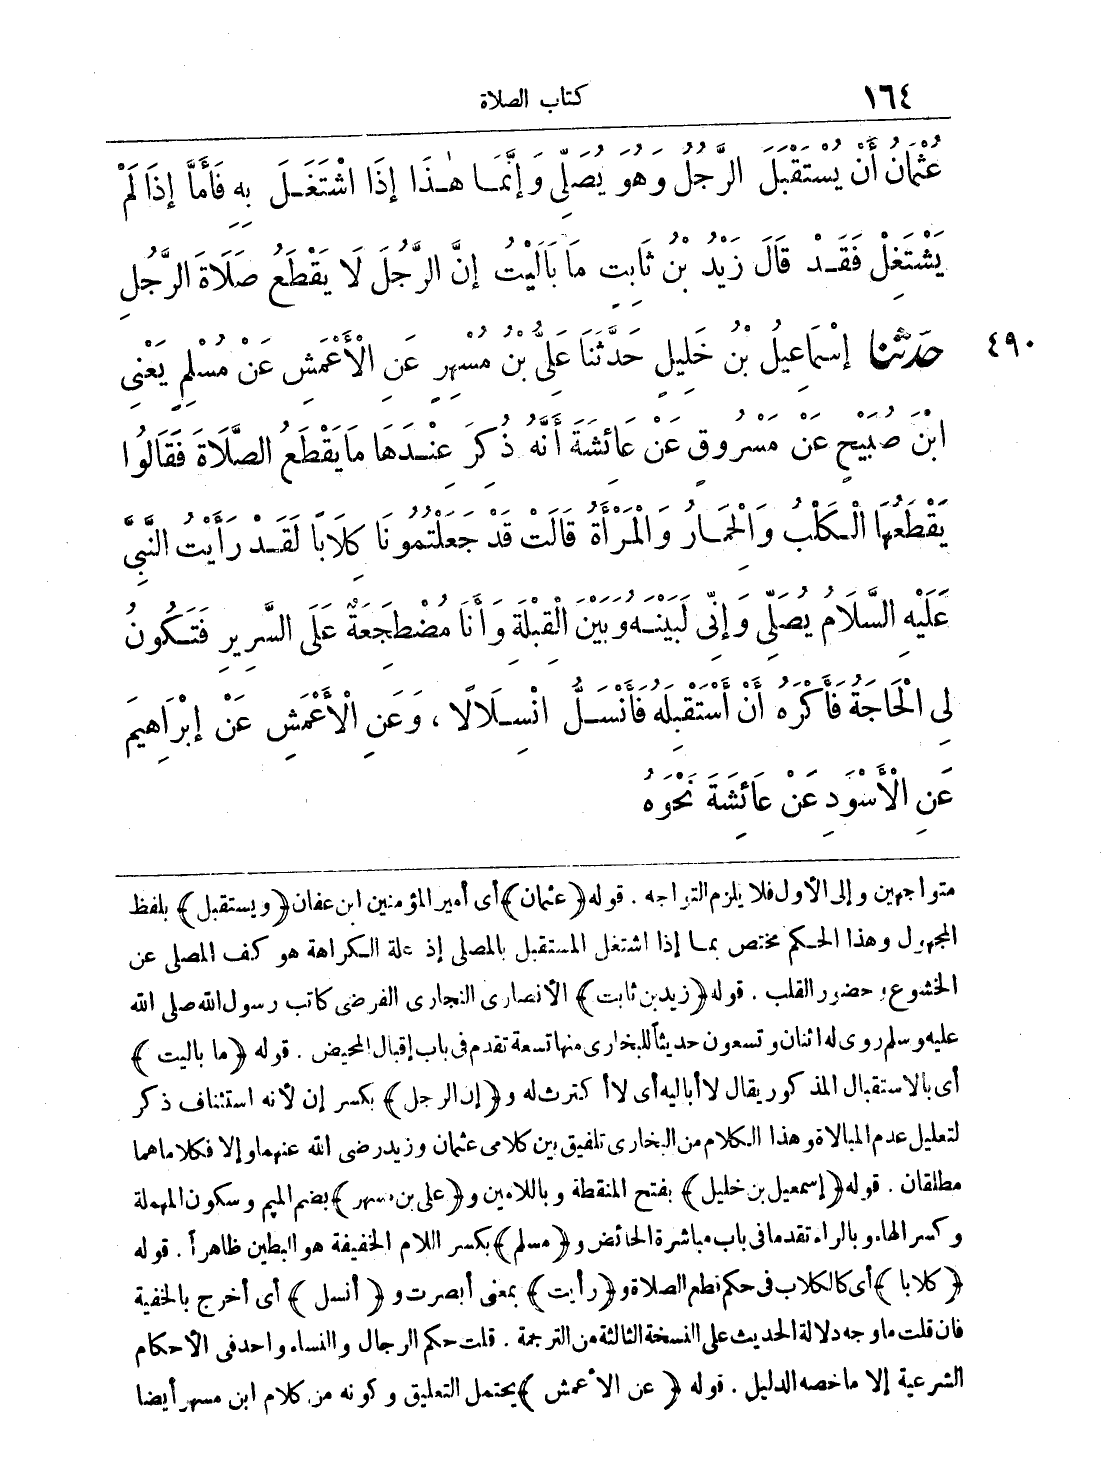 ١٦٤ كتاب الصلاة
عُثْمَانُ أَنْ يُسْتَقْبَلَ الرَّجُلُ وَهُوَ يُصَلِّى وَإِنَّمَا هٰذَا إِذَا اشْتَغَلَ بِهِ فَأَمَّا إِذَا لَمْ
يَشْتَغِلْ فَقَدْ قَالَ زَيْدُ بْنُ ثَابِتٍ مَا بَالَيْتُ إِنَّ الرَّجُلَ لَا يَقْطَعُ صَلَاةَ الرَّجُلِ
٤٩٠ حَدَّثَنَا إِسْمَاعِيلُ بْنُ خَلِيلٍ حَدَّثَنَا عَلِىُّ بْنُ مُسْهِرٍ عَنِ الْأَعْمَشِ عَنْ مُسْلِمٍ يَعْنِى
ابْنَ صُبَيْحٍ عَنْ مَسْرُوقٍ عَنْ عَائِشَةَ أَنَّهُ ذُكِرَ عِنْدَهَا مَا يَقْطَعُ الصَّلَاةَ فَقَالُوا
يَقْطَعُهَا الْكَلْبُ وَالْحِمَارُ وَالْمَرْأَةُ قَالَتْ قَدْ جَعَلْتُمُونَا كِلَاباً لَقَدْ رَأَيْتُ النَّبِىَّ
عَلَيْهِ السَّلَامُ يُصَلِّى وَإِنِّى لَبَيْنَهُ وَبَيْنَ الْقِبْلَةِ وَأَنَا مُضْطَجِعَةٌ عَلَى السَّرِيرِ فَتَكُونُ
لِى الْحَاجَةُ فَأَكْرَهُ أَنْ أَسْتَقْبِلَهُ فَأَنْسَلُّ انْسِلَالًا ، وَعَنِ الْأَعْمَشِ عَنْ إِبْرَاهِيمَ
عَنِ الْأَسْوَدِ عَنْ عَائِشَةَ نَحْوَهُ
متواجهين وإلى الأول فلا يلزم التواجه . قوله ﴿عثمان﴾ أى أمير المؤمنين ابن عفان ﴿ويستقبل﴾ بلفظ
المجهول وهذا الحكم مختص بما إذا اشتغل المستقبل بالمصلى إذ علة الكراهة هو كف المصلى عن
الخشوع وحضور القلب . قوله ﴿زيد بن ثابت﴾ الأنصارى النجارى الفرضى كاتب رسول الله صلى الله
عليه وسلم روى له اثنان وتسعون حديثاً للبخارى منها تسعة تقدم فى باب إقبال المحيض . قوله ﴿ما باليت﴾
أى بالاستقبال المذكور يقال لا أباليه أى لا أكترث له و﴿إن الرجل﴾ بكسر إن لأنه استئناف ذكر
لتعليل عدم المبالاة وهذا الكلام من البخارى تلفيق بين كلامى عثمان وزيد رضى الله عنهما وإلا فكلاهما
مطلقان . قوله ﴿إسمعيل بن خليل﴾ بفتح المنقطة وباللامين و﴿على بن مسهر﴾ بضم الميم وسكون المهملة
وكسر الهاء وبالراء تقدما فى باب مباشرة الحائض و﴿مسلم﴾ بكسر اللام الخفيفة هو البطين ظاهراً . قوله
﴿كلابا﴾ أى كالكلاب فى حكم قطع الصلاة و﴿رأيت﴾ بمعنى أبصرت و﴿أنسل﴾ أى أخرج بالخفية
فان قلت ما وجه دلالة الحديث على النسخة الثالثة من الترجمة . قلت حكم الرجال والنساء واحد فى الأحكام
الشرعية إلا ما خصه الدليل . قوله ﴿عن الأعمش﴾ يحتمل التعليق وكونه من كلام ابن مسهر أيضا